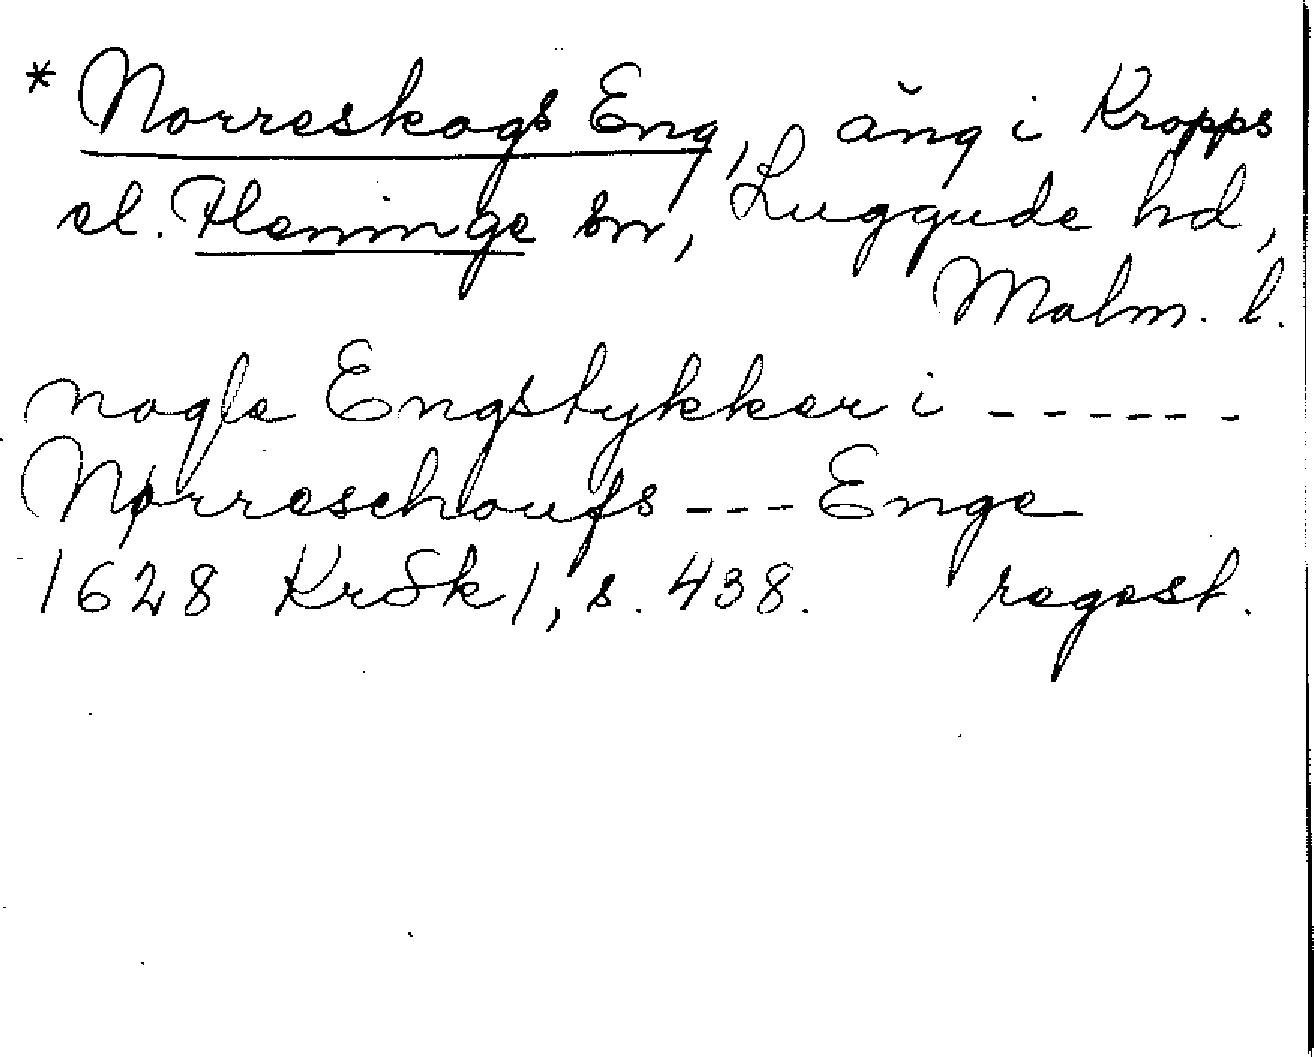 * Norreskogs Eng, äng i Kropps
el. Fleninge sn, Luggude hd,
Malm. l.
nogle Engstykker i ------
Nørreschoufs --- Enge
1628 KrSk 1, s. 438. regest.